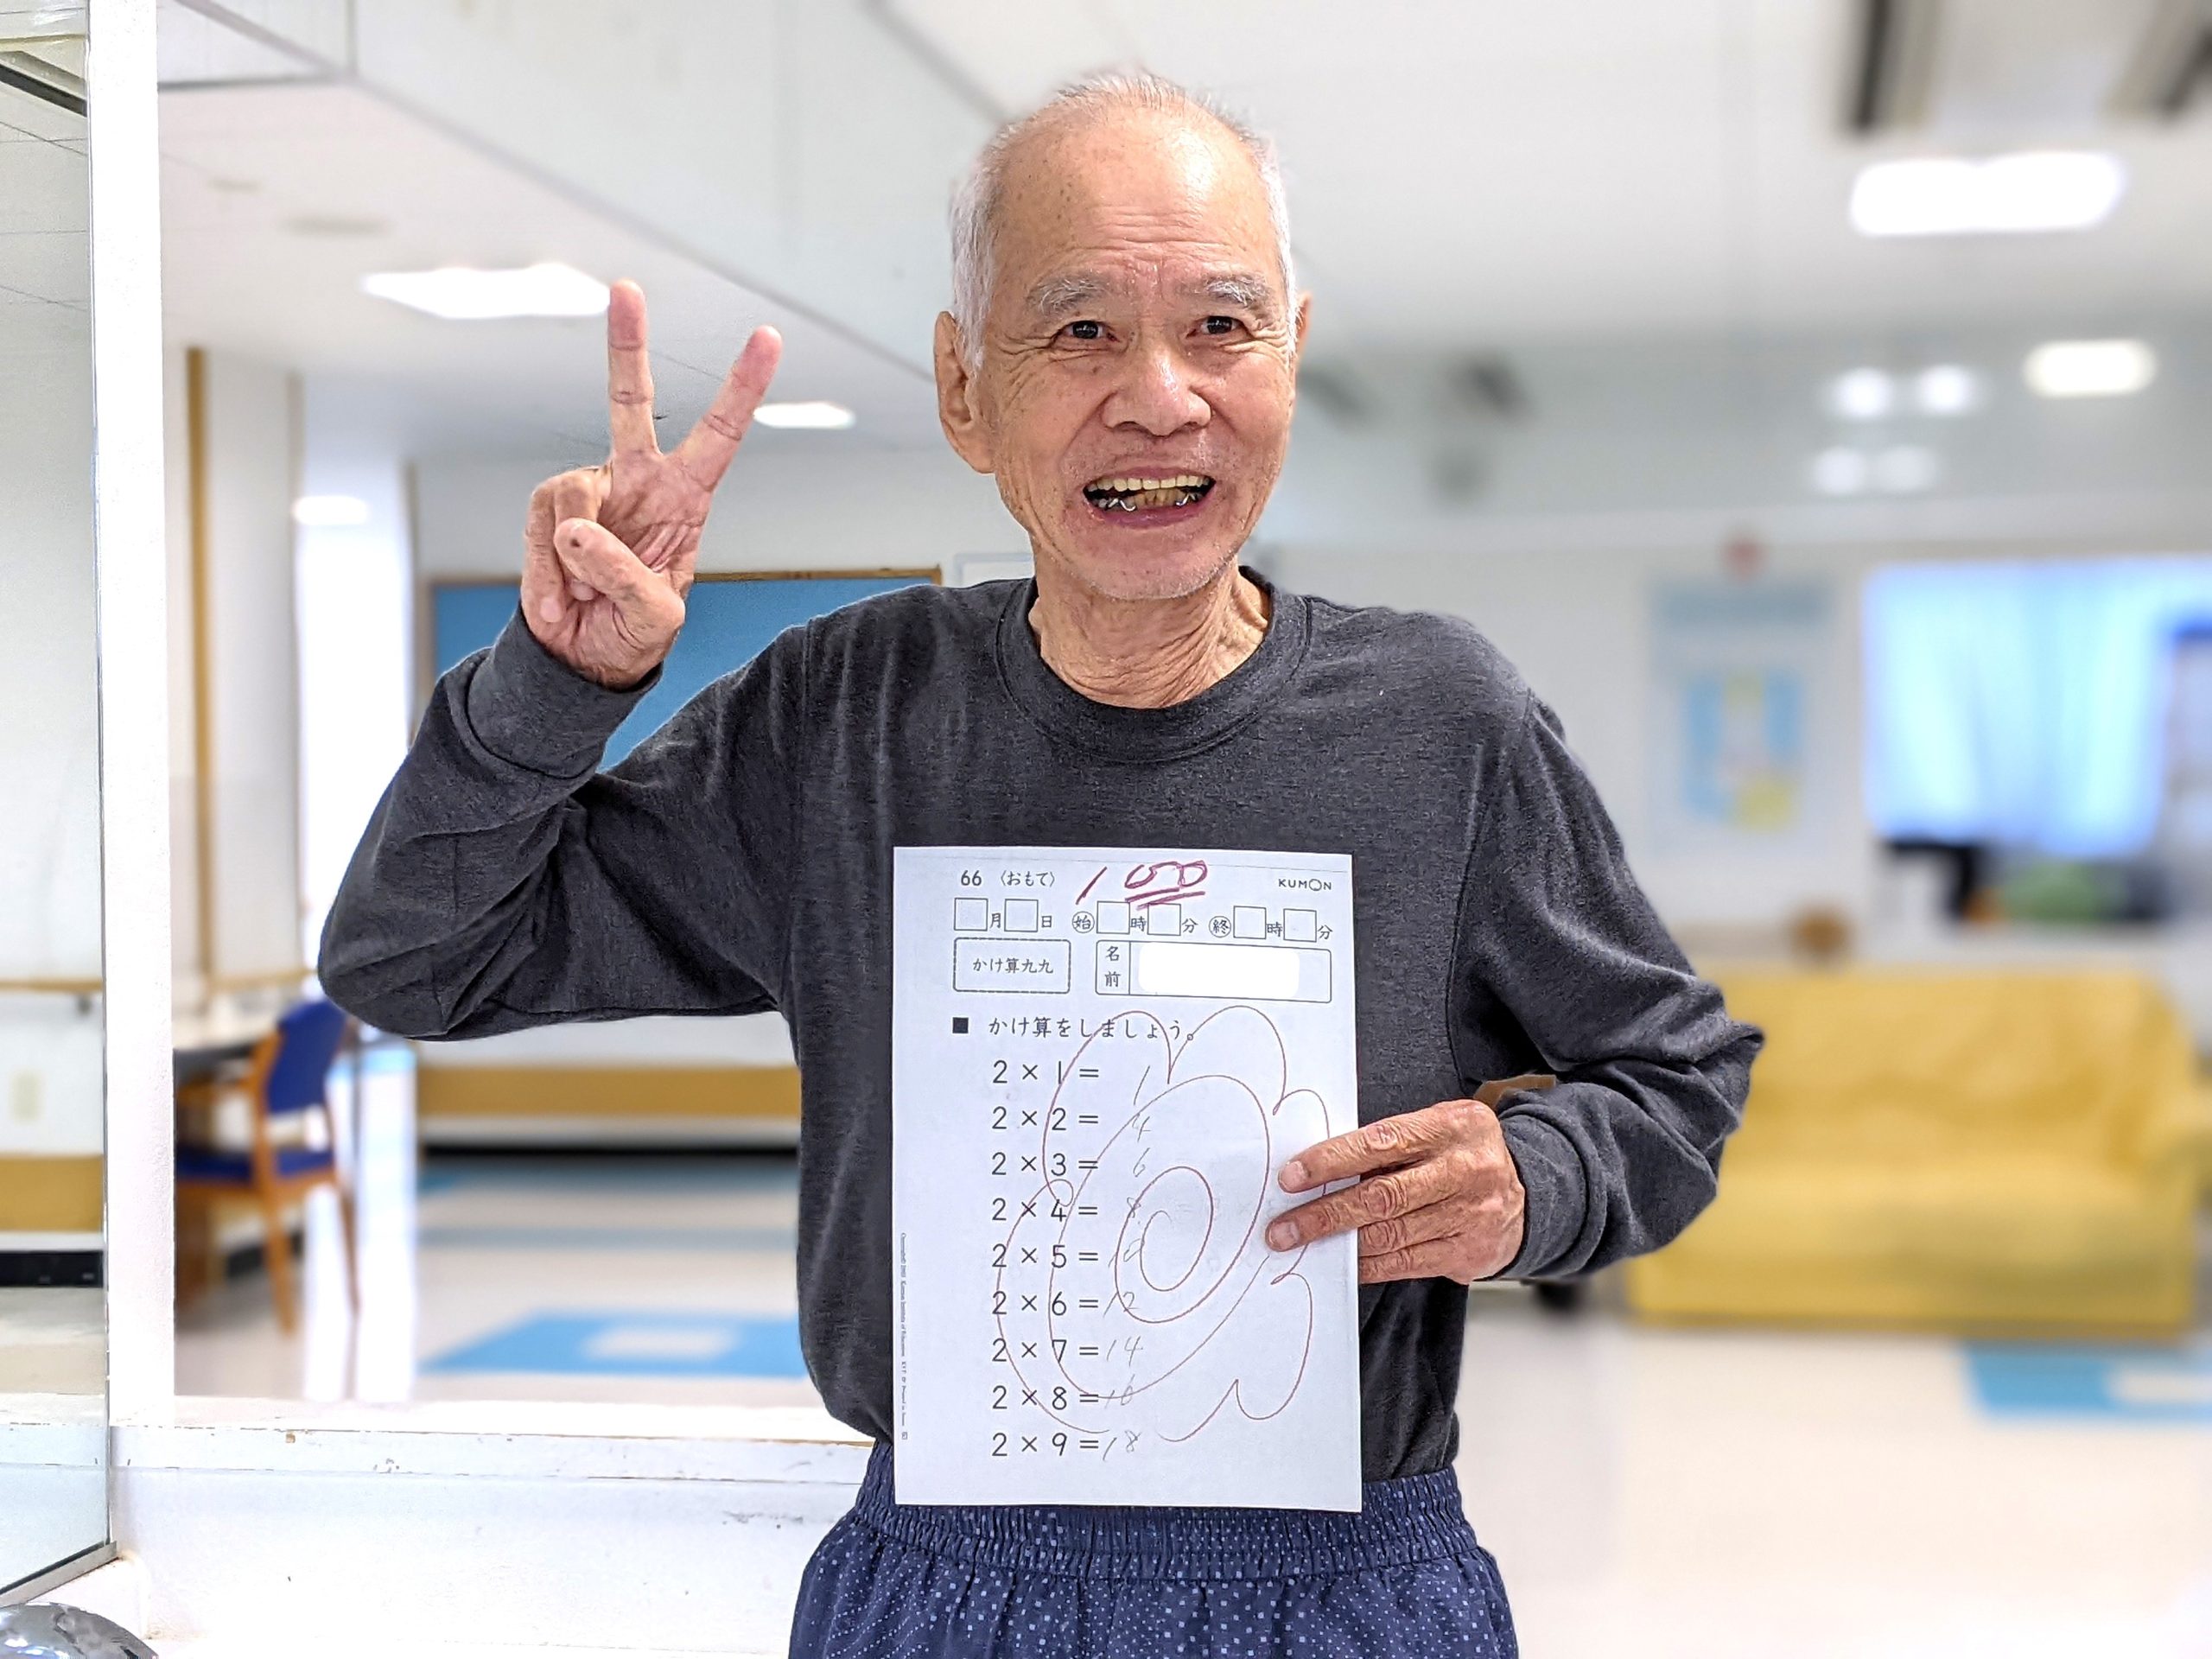 66 〈おもて〉 100 KUMON
月 日 始 時 分 終 時 分
かけ算九九 名前
■ かけ算をしましょう。
2 × 1 = 1
2 × 2 = 4
2 × 3 = 6
2 × 4 = 8
2 × 5 = 10
2 × 6 = 12
2 × 7 = 14
2 × 8 = 16
2 × 9 = 18